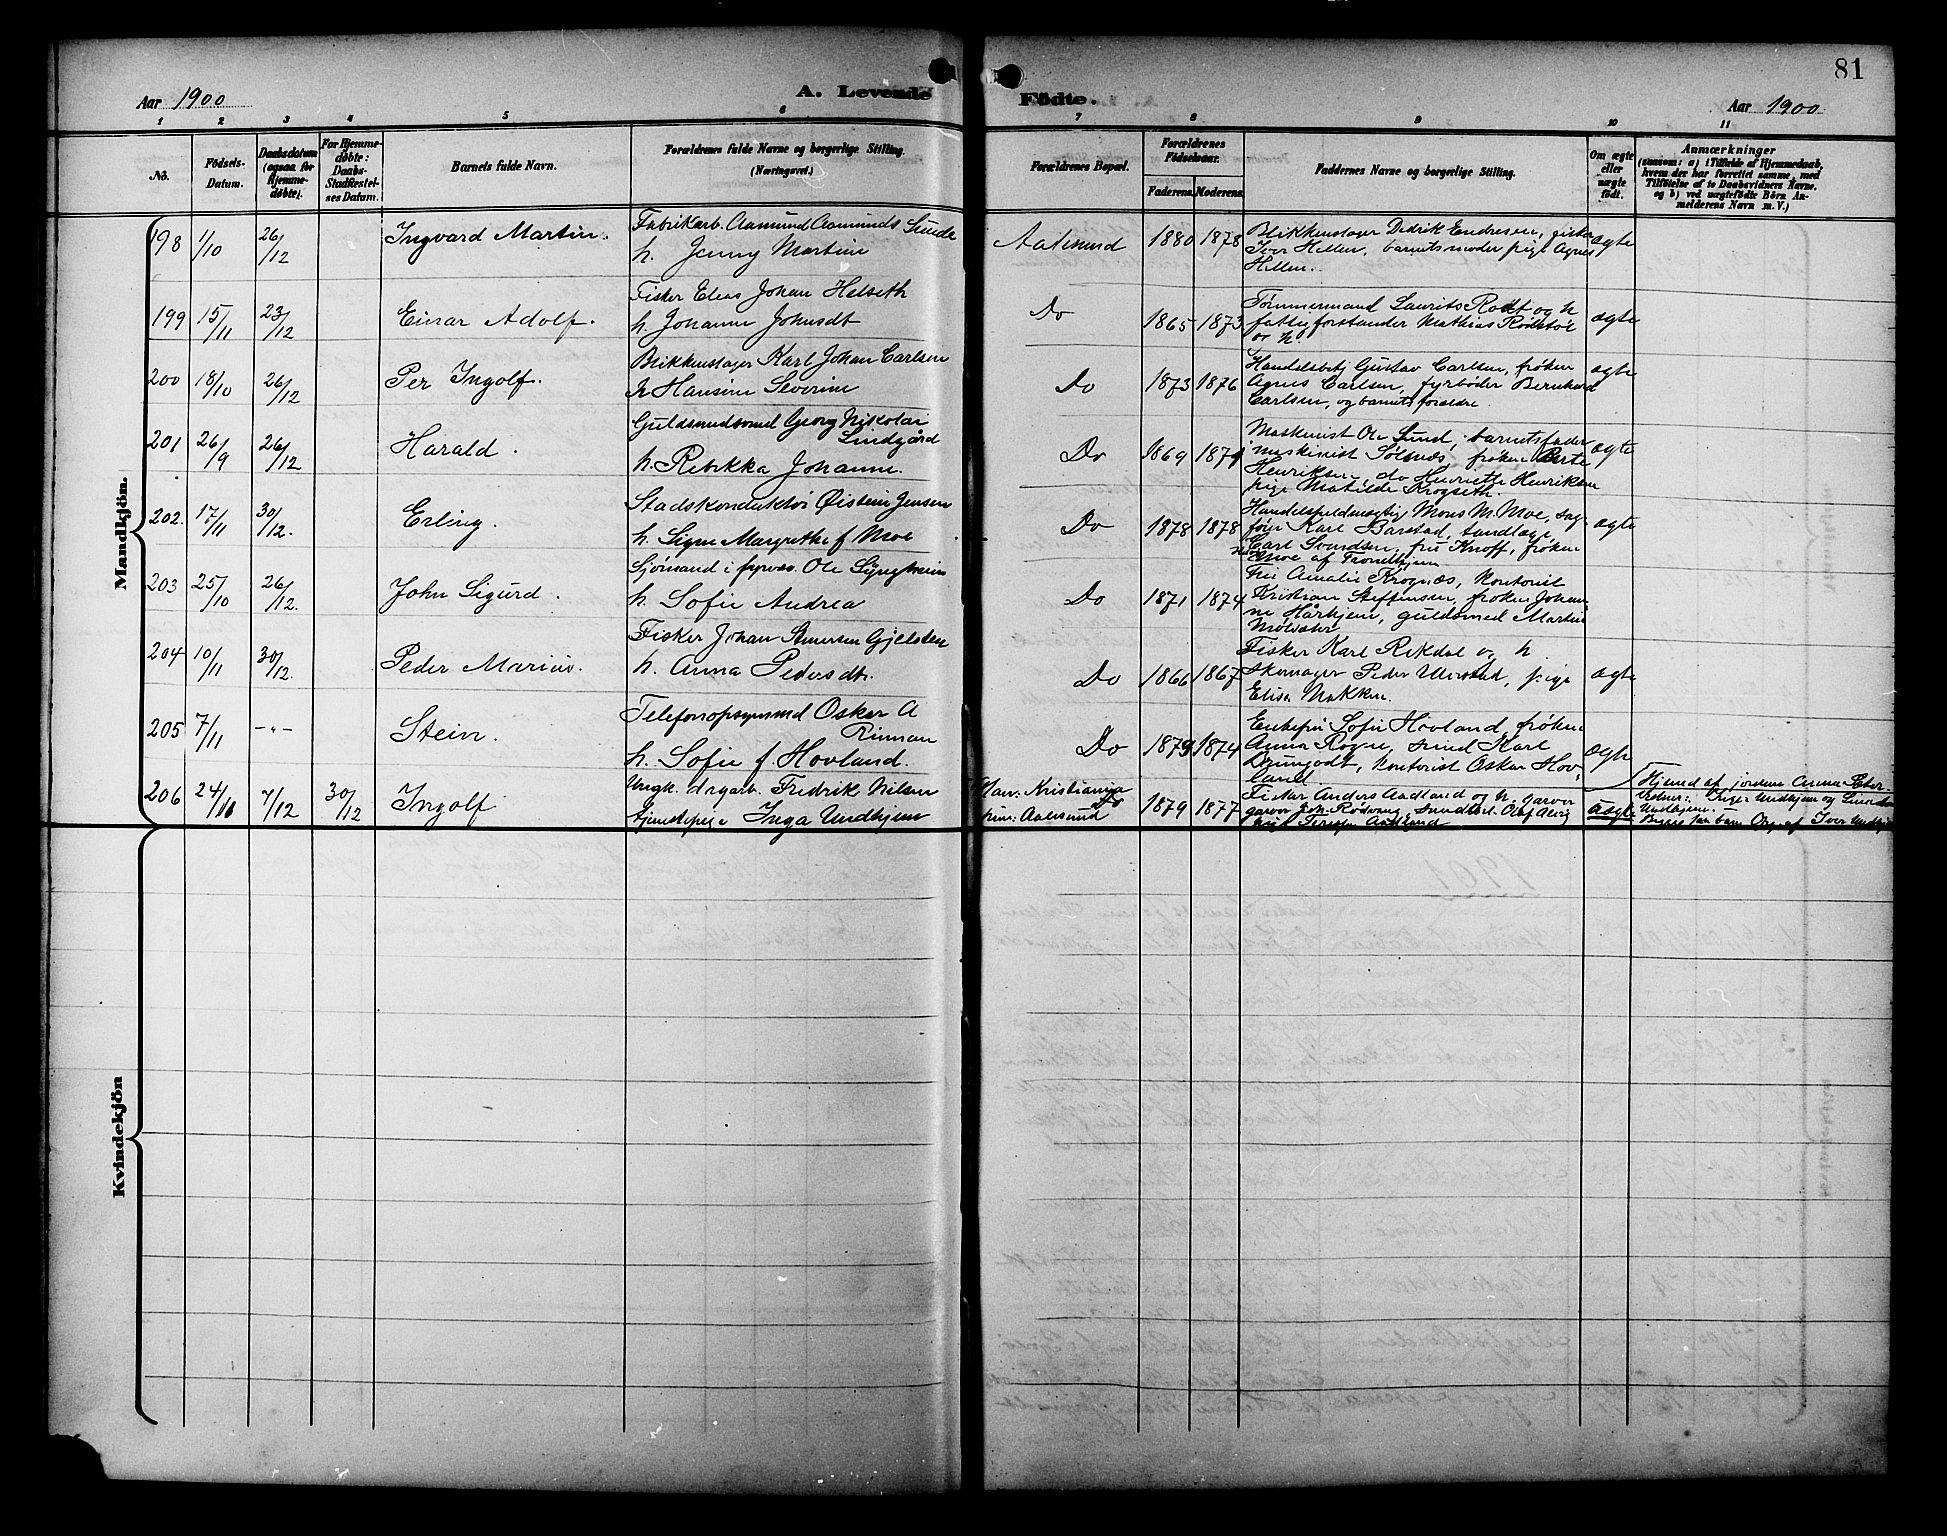 81
Aar 1900
A. Levende
Födte.
Aar 1900.
1 2 3 4 5 6 7 8 9 10 11
No.
Födsels-
Datum.
Daabsdatum
(ogsaa for
Hjemme-
døbte).
For Hjemme-
døbte:
Daabs-
Stadfæstel-
ses Datum.
Barnets fulde Navn.
Forældrenes fulde Navne og borgerlige Stilling.
(Næringsvei.)
Forældrenes Bopæl.
Forældrenes
Fødselsaar.
Faderens. Moderens.
Faddernes Navne og borgerlige Stilling.
Om ægte
eller
uægte
født.
Anmærkninger
(saasom: a) i Tilfælde af Hjemmedaab,
hvem der har forrettet samme, med
Tilföielse af to Daabsvidners Navne.
og b) ved uægtefödte Börn An-
melderens Navn m. V.)
Mandkjön.
198 1/10 26/12 Ingvard Martin.
Fabrikarb. Aamund Aamunds Sunde
h. Jenny Martine
Aalesund 1880 1878
Blikkenslager Didrik Endresen, fisker
Iver Hellen, barnets moder pige Agnes
Hellen.
ægte
199 15/11 23/12 Einar Adolf.
Fisker Elias Johan Helseth
h. Johanne Johnsdt
Do 1865 1873
Tømmermand Laurits Rødt og h
fattigforstander Mathias Rødstøl
og h.
ægte
200 18/10 26/12 Per Ingolf.
Blikkenslager Karl Johan Carlsen
h Hansine Severine
Do 1873 1876
Handelsbetj Gustav Carlsen, frøken
Agnes Carlsen, fyrbøder Bernhard
Carlsen, og barnets forældre
ægte
201 26/9 26/12 Harald.
Guldsmedsvend Georg Nikolai
Lindgård
h. Rebikka Johanne.
Do 1869 1871
Maskinist Ole Lund, barnets fader
maskinist Solnæs, frøken Berte
Henriksen, do Henriette Henriksen
pige Matilde Krogseth.
ægte
202. 17/11 30/12. Erling.
Stadskonduktør Øistein Jensen
h. Signe Margrethe f Moe
Do 1878 1878
Handelsfuldmægtig Mons M. Moe, sag-
fører Karl Barstad, tandlæge
Carl Svendsen, fru Knoff, frøken
Moe af Trondhjem
ægte
203 25/10 26/12. John Sigurd.
Sjømand i fyrvæs. Ole
h. Sofie Andrea
Do 1871 1874
Fru Amalie Krognæs, kontorist
Kristian Steffensen, frøken Johan-
ne Hårhjem, guldsmed Martin
Molvær
204 10/11 30/12. Peder Marius.
Fisker Johan Simersen Gjelsten
h. Anna Pedersdt.
Do 1866 1867
Fisker Karl Rekdal o, h.
Skomager Peder Ulvestad, pige
Elise Makken.
ægte
205 7/11 -„- Stein.
Telefonopsynsmd Oskar A
Rinnan
h. Sofie f. Hovland.
Do 1873 1874
Enkefru Sofie Hovland, frøken
Anna Rogne, smed Karl
kontorist Oskar Hov-
land
ægte
206 24/11 7/12 30/12 Ingolf
Ungk. dagarb. Fredrik Nilsen
tjenestepige Inga Undhjem
Han: Kristiania
Do
hun: Aalesund
1879 1877
Fisker Anders Aadland og h, garver
garver Joh. Rødseng, Olaf Alvig
Aadland
uægte
Hjemd. af jordem. Anna
Vidner: Inger Undhjem og
Undhjem.
af Iver Undhjem
Kvindekjön